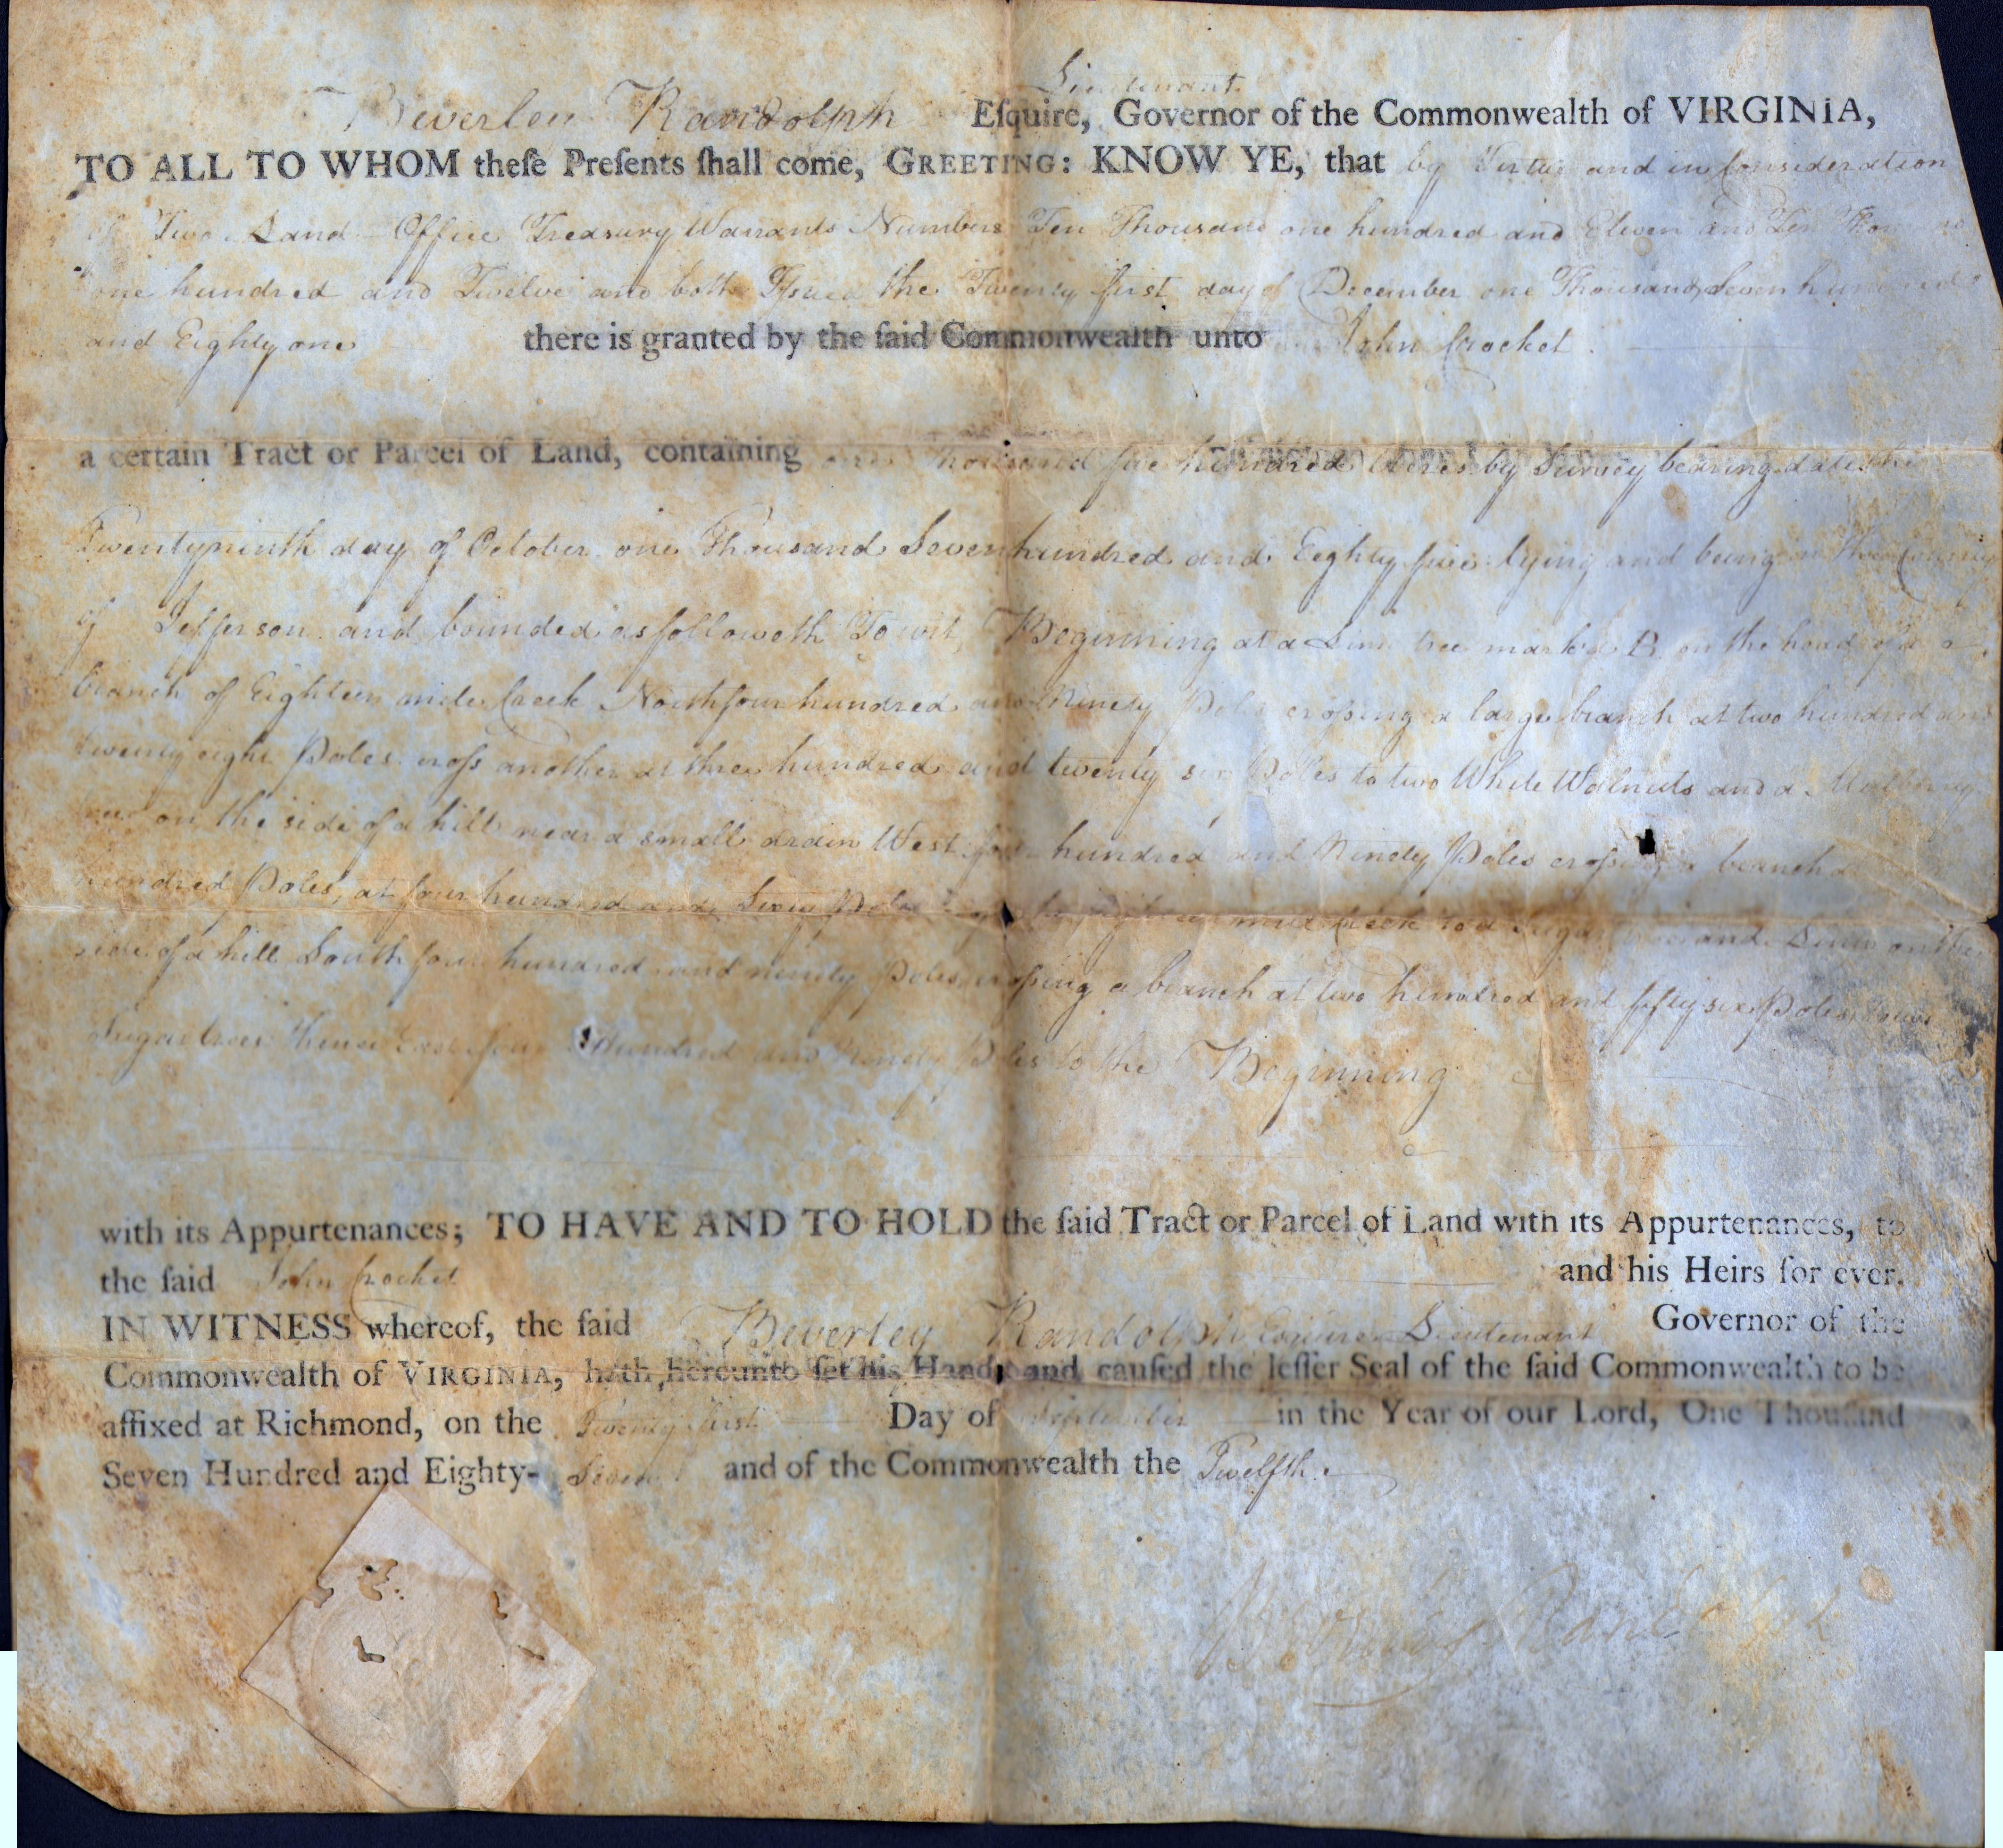 Lieutenant
Beverley Randolph Eſquire, Governor of the Commonwealth of VIRGINIA,
TO ALL TO WHOM theſe Preſents ſhall come, GREETING: KNOW YE, that by Virtue and in Consideration
of Two Land Office Treasury Warrants Numbers Ten Thousand one hundred and Eleven and Ten Thousand
one hundred and Twelve and both Iſsued the Twenty first day of December one Thousand Seven hundred
and Eighty one there is granted by the ſaid Commonwealth unto John Crocket
a certain Tract or Parcel of Land, containing one Thousand five hundred Acres by Survey bearing date the
Twentyninth day of October one Thousand Seven hundred and Eighty five lying and being in the County
of Jefferson and bounded as followeth To wit, Beginning at a Linn tree mark'd B on the head of a
branch of Eighteen mile Creek North four hundred and Ninety Poles croſsing a large branch at two hundred and
twenty eight Poles croſs another at three hundred and twenty six Poles to two White Walnuts and a Mulberry
tree on the side of a hill near a small drain West four hundred and Ninety Poles croſsing a branch at
hundred Poles, at four hundred and Sixty Poles mile Creek to a Sugar tree and Linn on the
side of a hill South four hundred and ninety Poles croſsing a branch at two hundred and fifty six Poles to two
Sugar trees thence East four hundred and Ninety Poles to the Beginning
with its Appurtenances; TO HAVE AND TO HOLD the ſaid Tract or Parcel of Land with its Appurtenances, to
the ſaid John Crocket and his Heirs for ever.
IN WITNESS whereof, the ſaid Beverley Randolph Esquire Lieutenant Governor of the
Commonwealth of VIRGINIA, hath hereunto ſet his Hand, and cauſed the leſſer Seal of the ſaid Commonwealth to be
affixed at Richmond, on the Twenty first Day of September in the Year of our Lord, One Thouſand
Seven Hundred and Eighty- Seven and of the Commonwealth the Twelfth.
Beverley Randolph